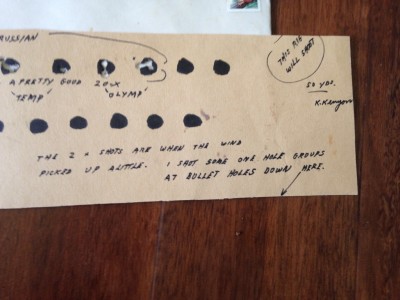 RUSSIAN
THIS RIG
WILL SHOOT
A PRETTY GOOD 20-X
"TEMP" "OLYMP"
50 YDS.
THE 2 X SHOTS ARE WHEN THE WIND
PICKED UP A LITTLE. I SHOT SOME ONE HOLE GROUPS
AT BULLET HOLES DOWN HERE.